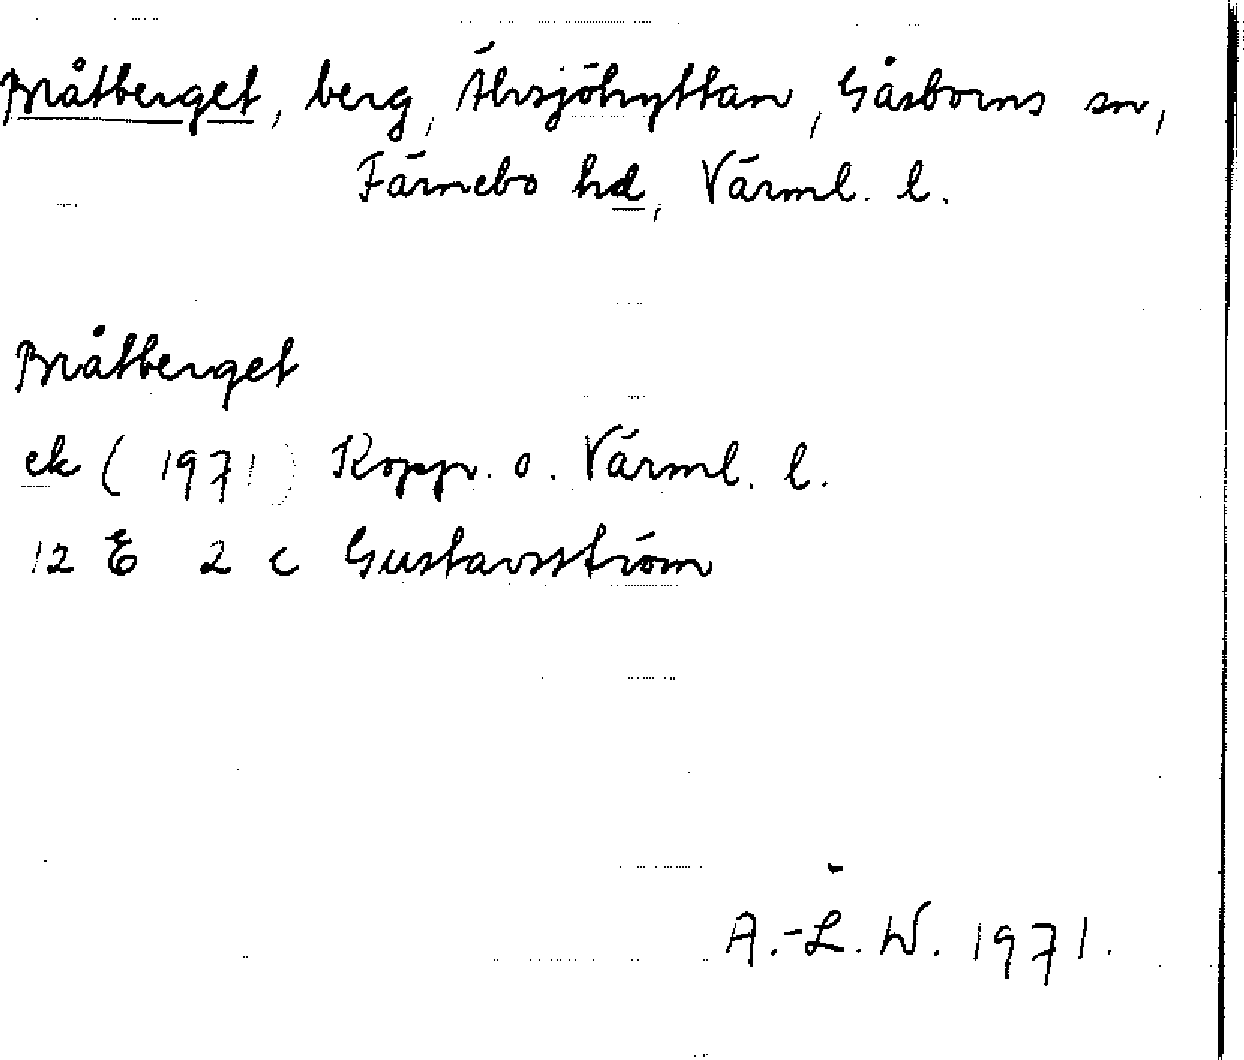 Bråtberget, berg, Älvsjöhyttan, Gåsborns sn,
Färnebo hd, Värml. l.
Bråtberget
ek (1971) Kopp. o. Värml. l.
12 E 2 c Gustavsström
A.-L. W. 1971.